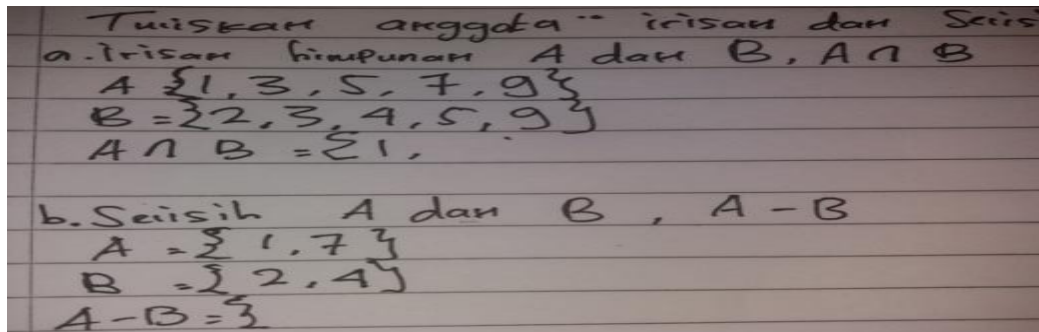 Tuliskan anggota" irisan dan Selis
a. Irisan himpunan A dan B, A ∩ B
A {1, 3, 5, 7, 9}
B = {2, 3, 4, 5, 9}
A ∩ B = {1,
b. Selisih A dan B, A - B
A = {1, 7}
B = {2, 4}
A - B = {